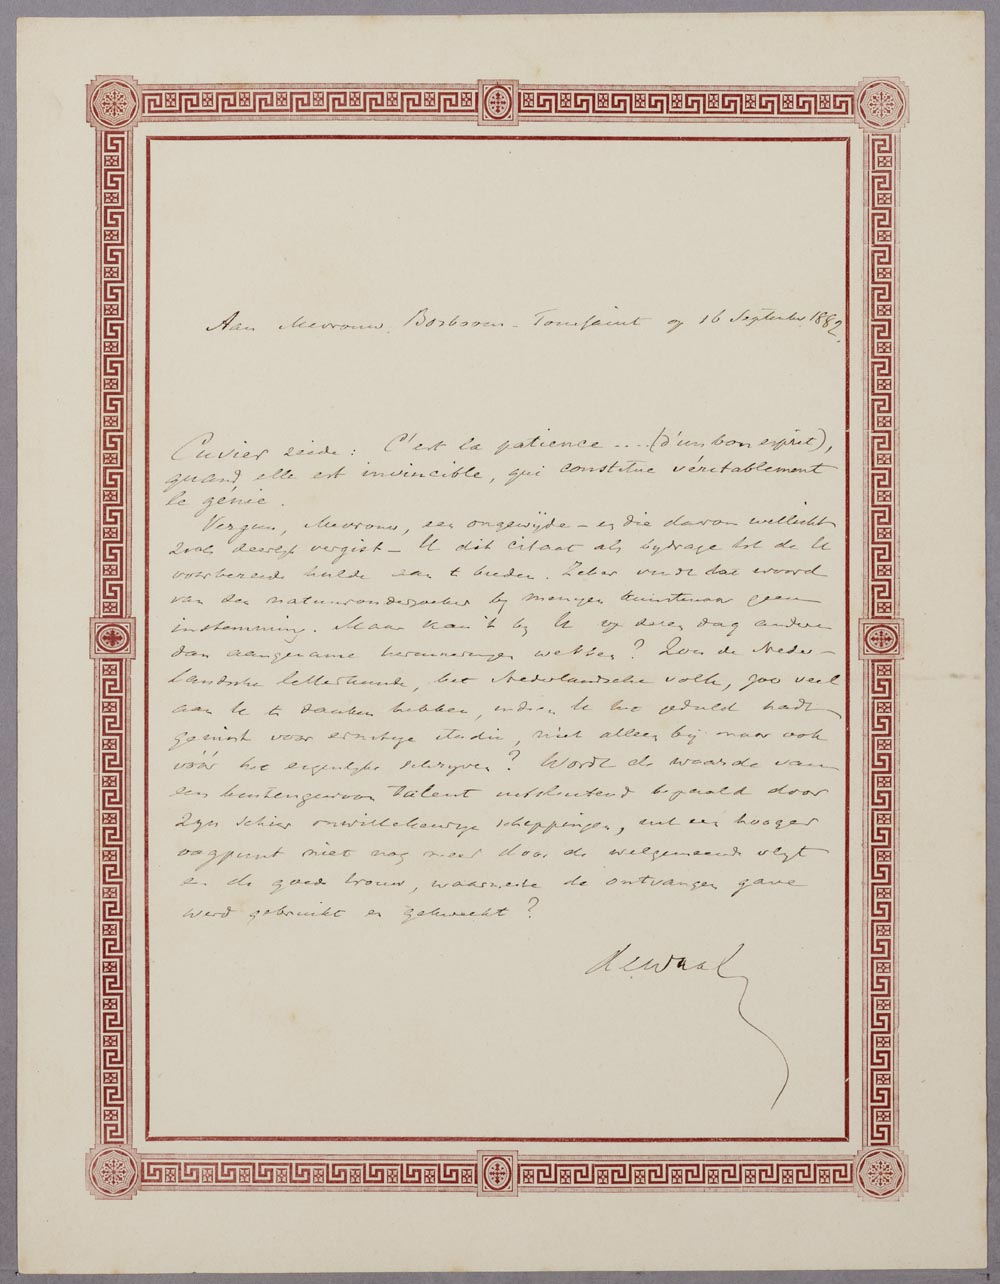 Aan Mevrouw Bosboom-Toussaint op 16 September 1882.
Cuvier zeide: C'est la patience .... (d'un bon esprit),
quand elle est invincible, qui constitue véritablement
le génie.
Vergun, Mevrouw, een ongewijde — en die daarom wellicht
zich deerlijk vergist — U dit citaat als bijdrage tot de U
voorbereide hulde aan te bieden. Zeker vindt dat woord
van den natuuronderzoeker bij menigen kunstenaar geen
instemming. Maar kan 't bij U op dezen dag andere
dan aangename herinneringen wekken? Zou de Neder-
landsche letterkunde, het Nederlandsche volk, zoo veel
aan U te danken hebben, indien U het geduld hadt
gemist voor ernstige studie, niet alleen bij maar ook
vóór het eigenlijke schrijven? Wordt de waarde van
een buitengewoon talent uitsluitend bepaald door
zijn schier onwillekeurige scheppingen, uit een hooger
oogpunt niet nog meer door de welgemeende vlijt
en de goede trouw, waarmede de ontvangen gave
werd gebruikt en gekweekt?
de Waal